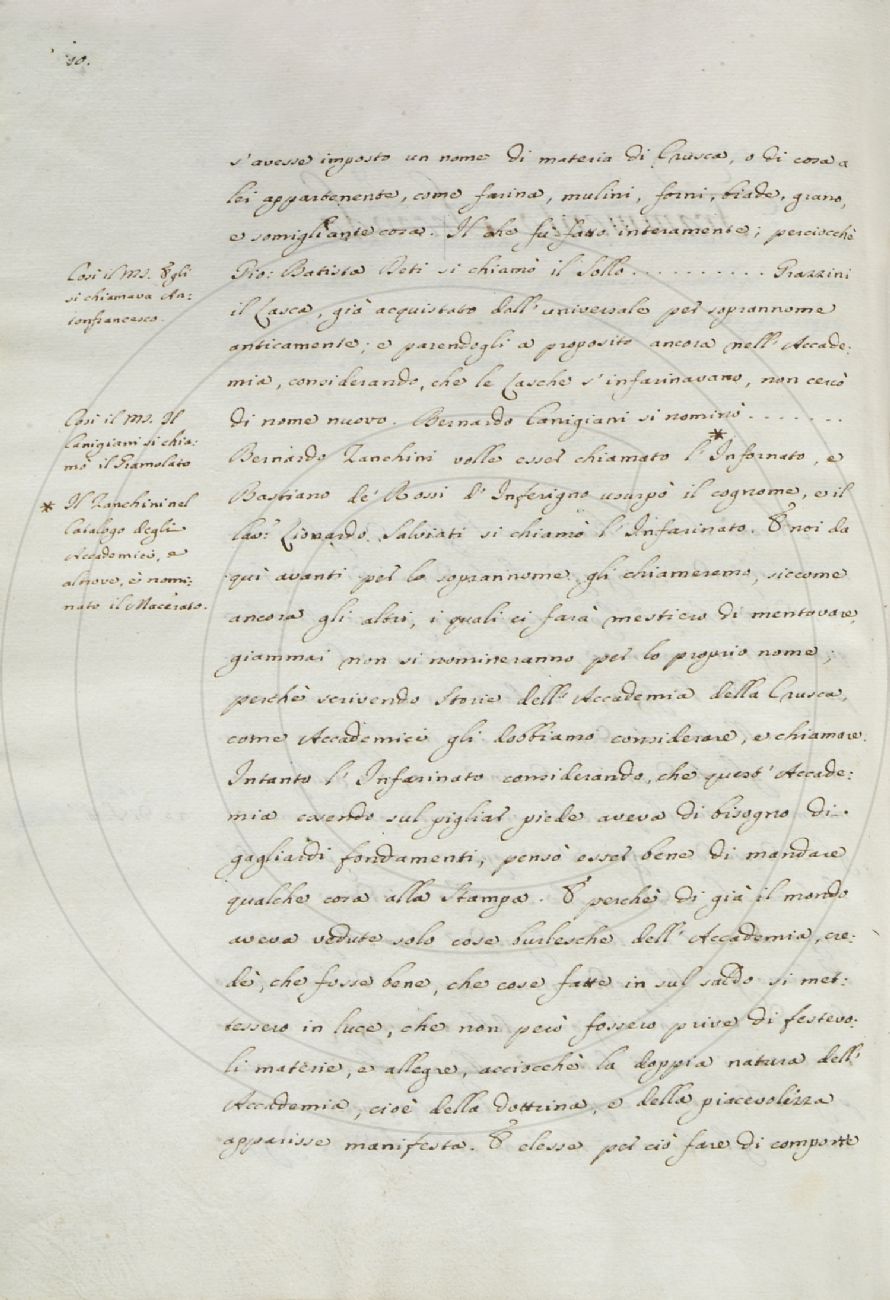 10.
s'avesse imposto un nome di materia di Crusca, o di cosa a
lei appartenente, come farina, mulini, forni, biade, grano,
e somigliante cosa. Il che fu fatto interamente; perciocchè
Così il MS. Egli
si chiamava An:
tonfrancesco.
Gio: Batista Deti si chiamò il Sollo .......... Grazzini
il Lasca, già acquistato dall'universale per soprannome
anticamente; e parendogli a proposito ancora nell'Accade:
mia, considerando, che le Lasche s'infarinavano, non cercò
Così il MS. Il
Canigiani si chia:
mò il Gramolato
di nome nuovo. Bernardo Canigiani si nominò .......
Bernardo Zanchini volle esser chiamato l'*Infornato, e
* Il Zanchini nel
Catalogo degli
Accademici, e
altrove, è nomi:
nato il Macerato.
Bastiano de' Rossi d'Inferigno usurpò il cognome, e il
Cav: Lionardo Salviati si chiamò l'Infarinato. E noi da
quì avanti per lo soprannome gli chiameremo, siccome
ancora gli altri, i quali ci farà mestiero di mentovare,
giammai non si nomineranno per lo proprio nome;
perchè scrivendo Storie dell'Accademia della Crusca,
come Accademici gli dobbiamo considerare, e chiamare.
Intanto l'Infarinato considerando, che quest'Accade:
mia essendo sul pigliar piede aveva di bisogno di
gagliardi fondamenti, pensò esser bene di mandare
qualche cosa alla Stampa. E perchè di già il mondo
aveva vedute solo cose burlesche dell'Accademia, cre:
dè, che fosse bene, che cose fatte in sul sacdo si met:
tessero in luce, che non però fossero prive di festevo:
li materie, e allegre, acciocchè la doppia natura dell'
Accademia, cioè della dottrina, e della piacevolezza
apparisse manifesta. E elesse per ciò fare di comporre